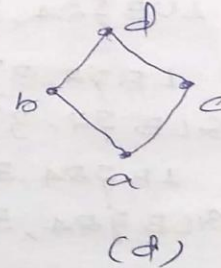 d
b c
a
(d)